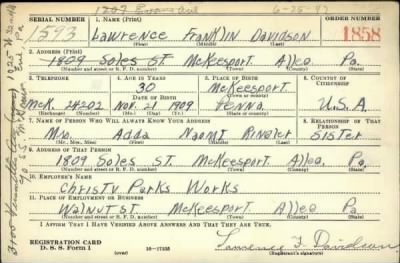 1207 Evans Ave 6-25-47
SERIAL NUMBER 1. NAME (Print) ORDER NUMBER
1593 Lawrence Franklin Davidson 1858
(First) (Middle) (Last)
2. ADDRESS (Print)
1809 Soles St. McKeesport Alleg. Pa.
(Number and street or R. F. D. number) (Town) (County) (State)
3. TELEPHONE 4. AGE IN YEARS 5. PLACE OF BIRTH 6. COUNTRY OF CITIZENSHIP
30 McKeesport
DATE OF BIRTH (Town or county)
McK. 24202 Nov. 21 1909 Penna. U.S.A.
(Exchange) (Number) (Mo.) (Day) (Yr.) (State or country)
7. NAME OF PERSON WHO WILL ALWAYS KNOW YOUR ADDRESS 8. RELATIONSHIP OF THAT PERSON
Mrs. Adda Naomi Ringler Sister
(Mr., Mrs., Miss) (First) (Middle) (Last)
9. ADDRESS OF THAT PERSON
1809 Soles St. McKeesport Alleg. Pa.
(Number and street or R. F. D. number) (Town) (County) (State)
10. EMPLOYER'S NAME
Christy Parks Works
11. PLACE OF EMPLOYMENT OR BUSINESS
Walnut St. McKeesport Alleg Pa.
(Number and street or R. F. D. number) (Town) (County) (State)
I AFFIRM THAT I HAVE VERIFIED ABOVE ANSWERS AND THAT THEY ARE TRUE.
REGISTRATION CARD
D. S. S. Form 1 (over) 16-17105 Lawrence F. Davidson
(Registrant's signature)